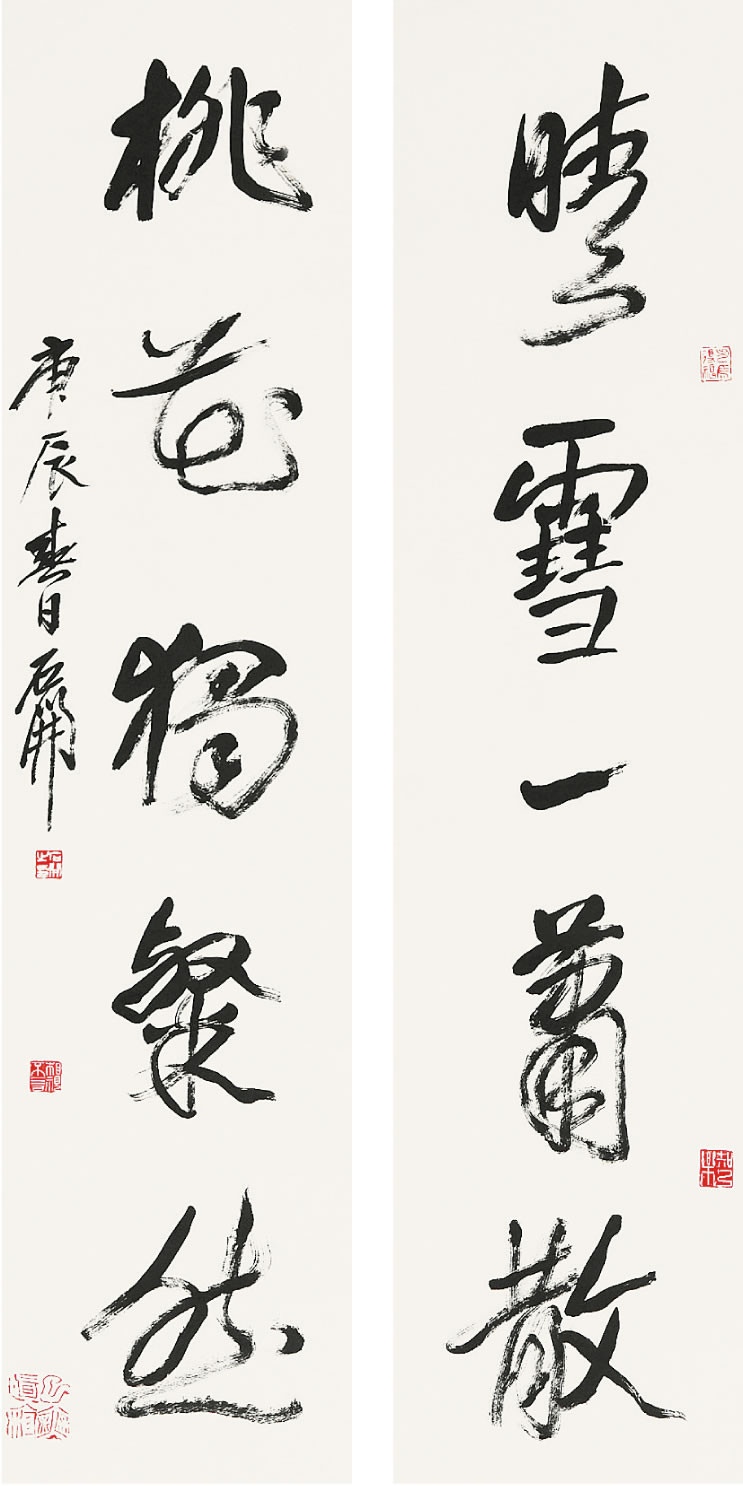 晴雪一蕭散
桃花獨粲然
庚辰春日石開